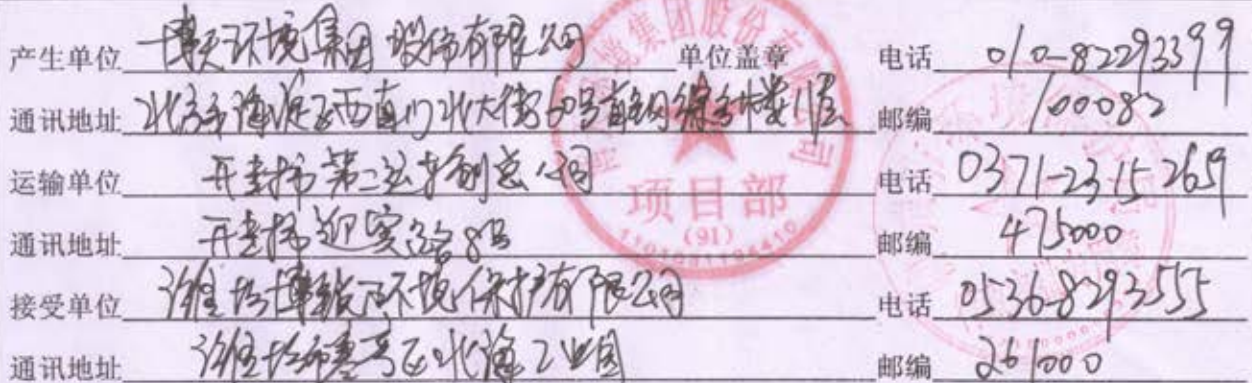 产生单位 博天环境集团股份有限公司 单位盖章 电话 010-82293399
通讯地址 北京市海淀区西直门北大街60号首钢综合楼11层 邮编 100082
运输单位 开封市第二运输总公司 电话 0371-23152659
通讯地址 开封市迎宾路8号 邮编 475000
接受单位 潍坊博锐环境保护有限公司 电话 0536-8293555
通讯地址 潍坊市寒亭区北海工业园 邮编 261000
境集团股份有限公司
项目部
(91)